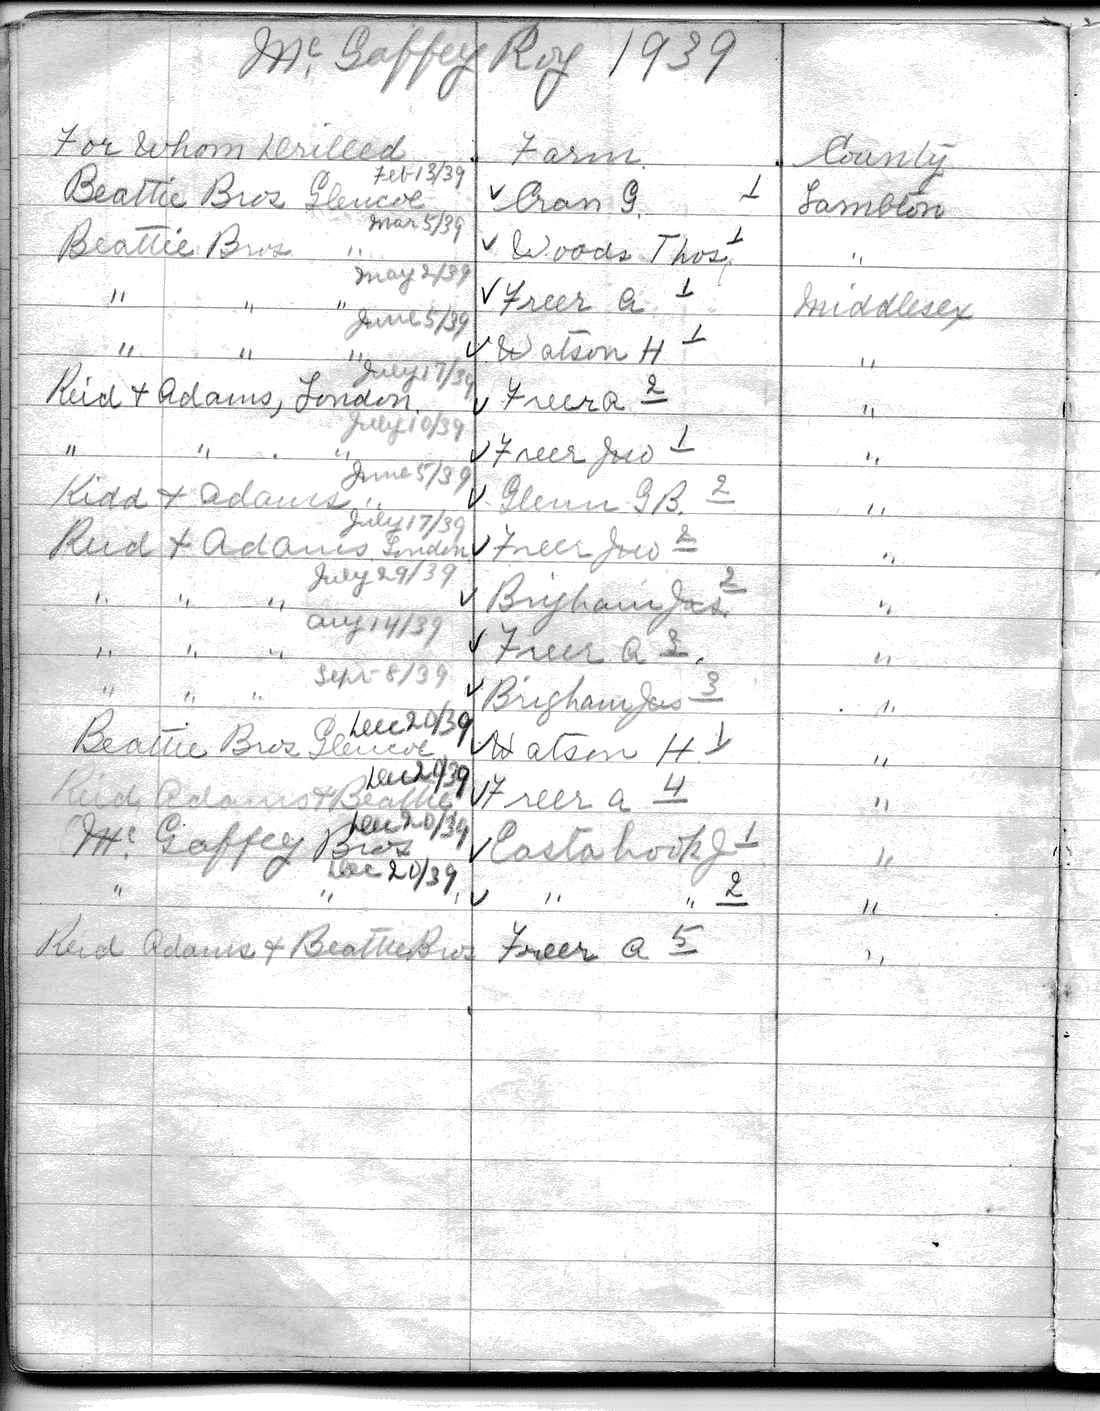 Mc Gaffey Roy 1939
For Whom Drilled Farm. County
Beattie Bros Glencoe Feb 13/39 ✓ Oran G. 1 Lambton
Beattie Bros " Mar 5/39 ✓ Woods Thos. 1 "
" " " May 2/39 ✓ Freer A 1 Middlesex
" " " June 5/39 ✓ Watson H 1 "
Reid & Adams, London. July 17/39 ✓ Freer A 2 "
" " " July 10/39 ✓ Freer Jno 1 "
Kidd & Adams " June 5/39 ✓ Glenn G B. 2 "
Reid & Adams London July 17/39 ✓ Freer Jno 2 "
" " " July 29/39 ✓ Brigham Jas. 2 "
" " " Aug 14/39 ✓ Freer A 3. "
" " " Sept 8/39 ✓ Brigham Jas 3 "
Beattie Bros Glencoe Dec 20/39 ✓ Watson H. 1 "
Reid, Adams & Beattie Dec 20/39 ✓ Freer A 4 "
Mc Gaffey Bros Dec 20/39 ✓ Eastabrook J 1 "
" " Dec 20/39 ✓ " " 2 "
Reid Adams & Beattie Bros Freer A 5 "